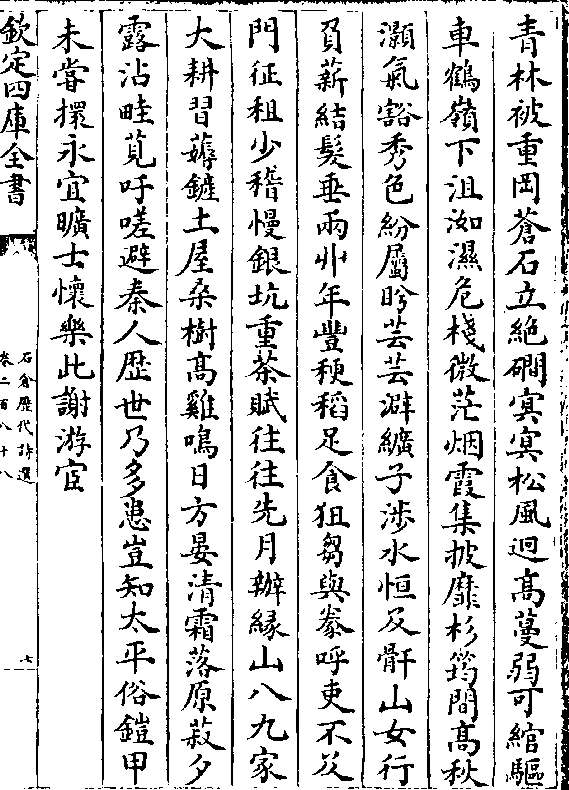 青林被重岡蒼石立絶磵㝠㝠松風迥高蔓弱可綰驅
車鶴嶺下沮洳濕危棧微茫烟霞集披靡杉筠間高秋
灝氣豁秀色紛屬盻芸芸澼纊子涉水恒及骭山女行
負薪結髮垂兩丱年豐稉稻足食狙芻與豢呼吏不及
門征租少稽慢銀坑重茶賦往往先月辦緣山八九家
大耕習薅鏟土屋桑樹髙雞鳴日方晏清霜落原菽夕
露沾畦莧吁嗟避秦人歴世乃多患豈知太平俗鎧甲
未嘗擐永宜曠士懷樂此謝游宦
欽定四庫全書
石倉歴代詩選
卷二百八十八
七